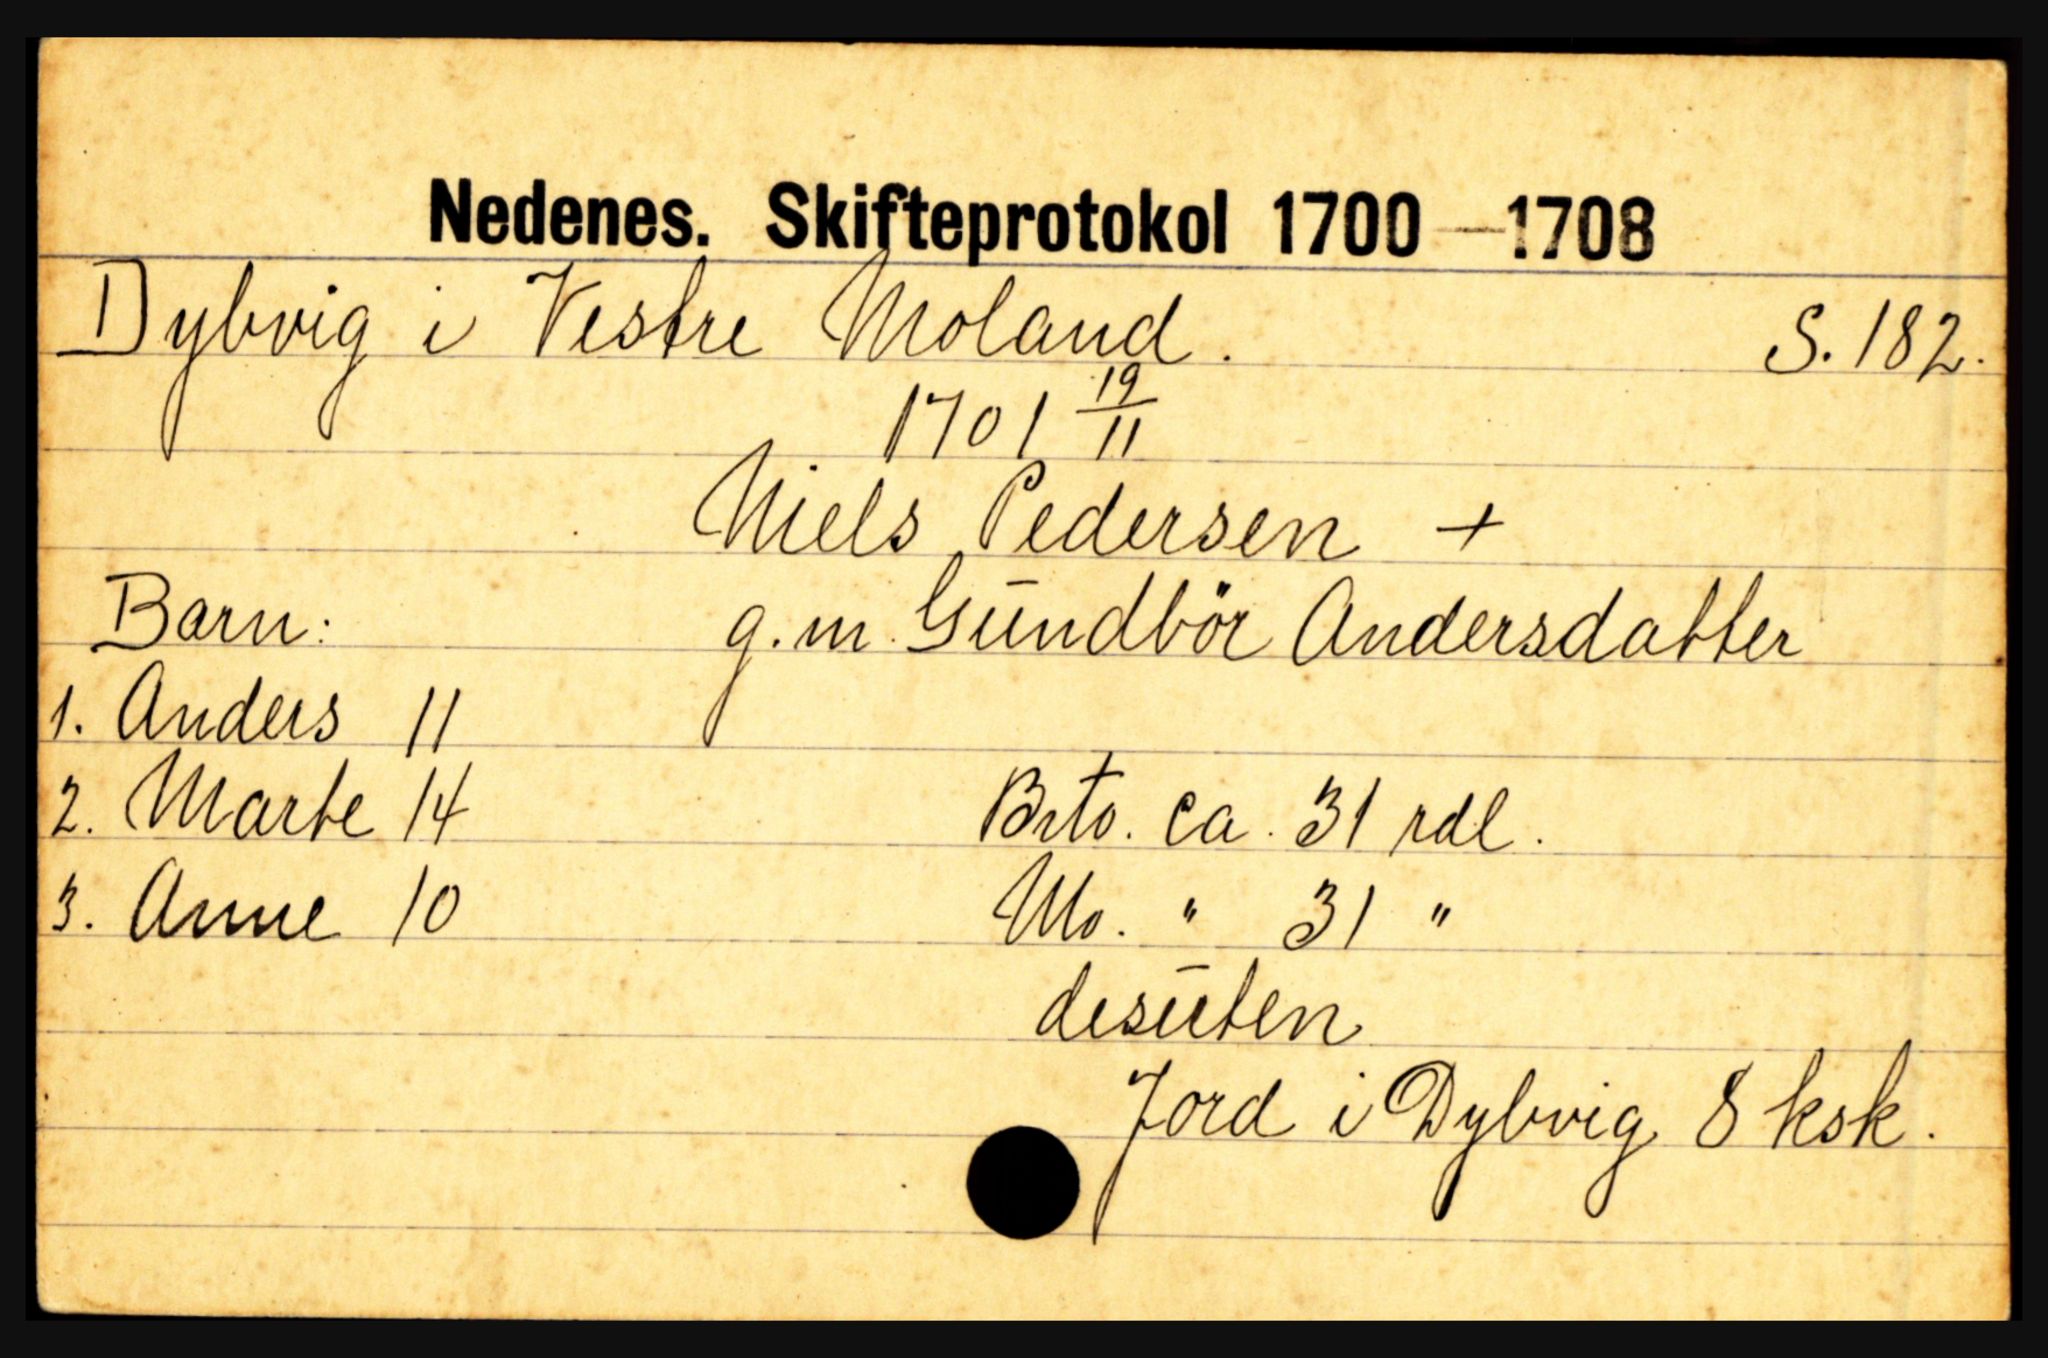 Nedenes. Skifteprotokol 1700—1708
Dybvig i Vestre Moland. S. 182.
1701 19/11
Niels Pedersen +
Barn: g.m. Gundbör Andersdatter
1. Anders 11
2. Marte 14 Brto. ca. 31 rdl.
3. Anne 10 No. " 31 "
desuten
Jord i Dybvig 8 ksk.